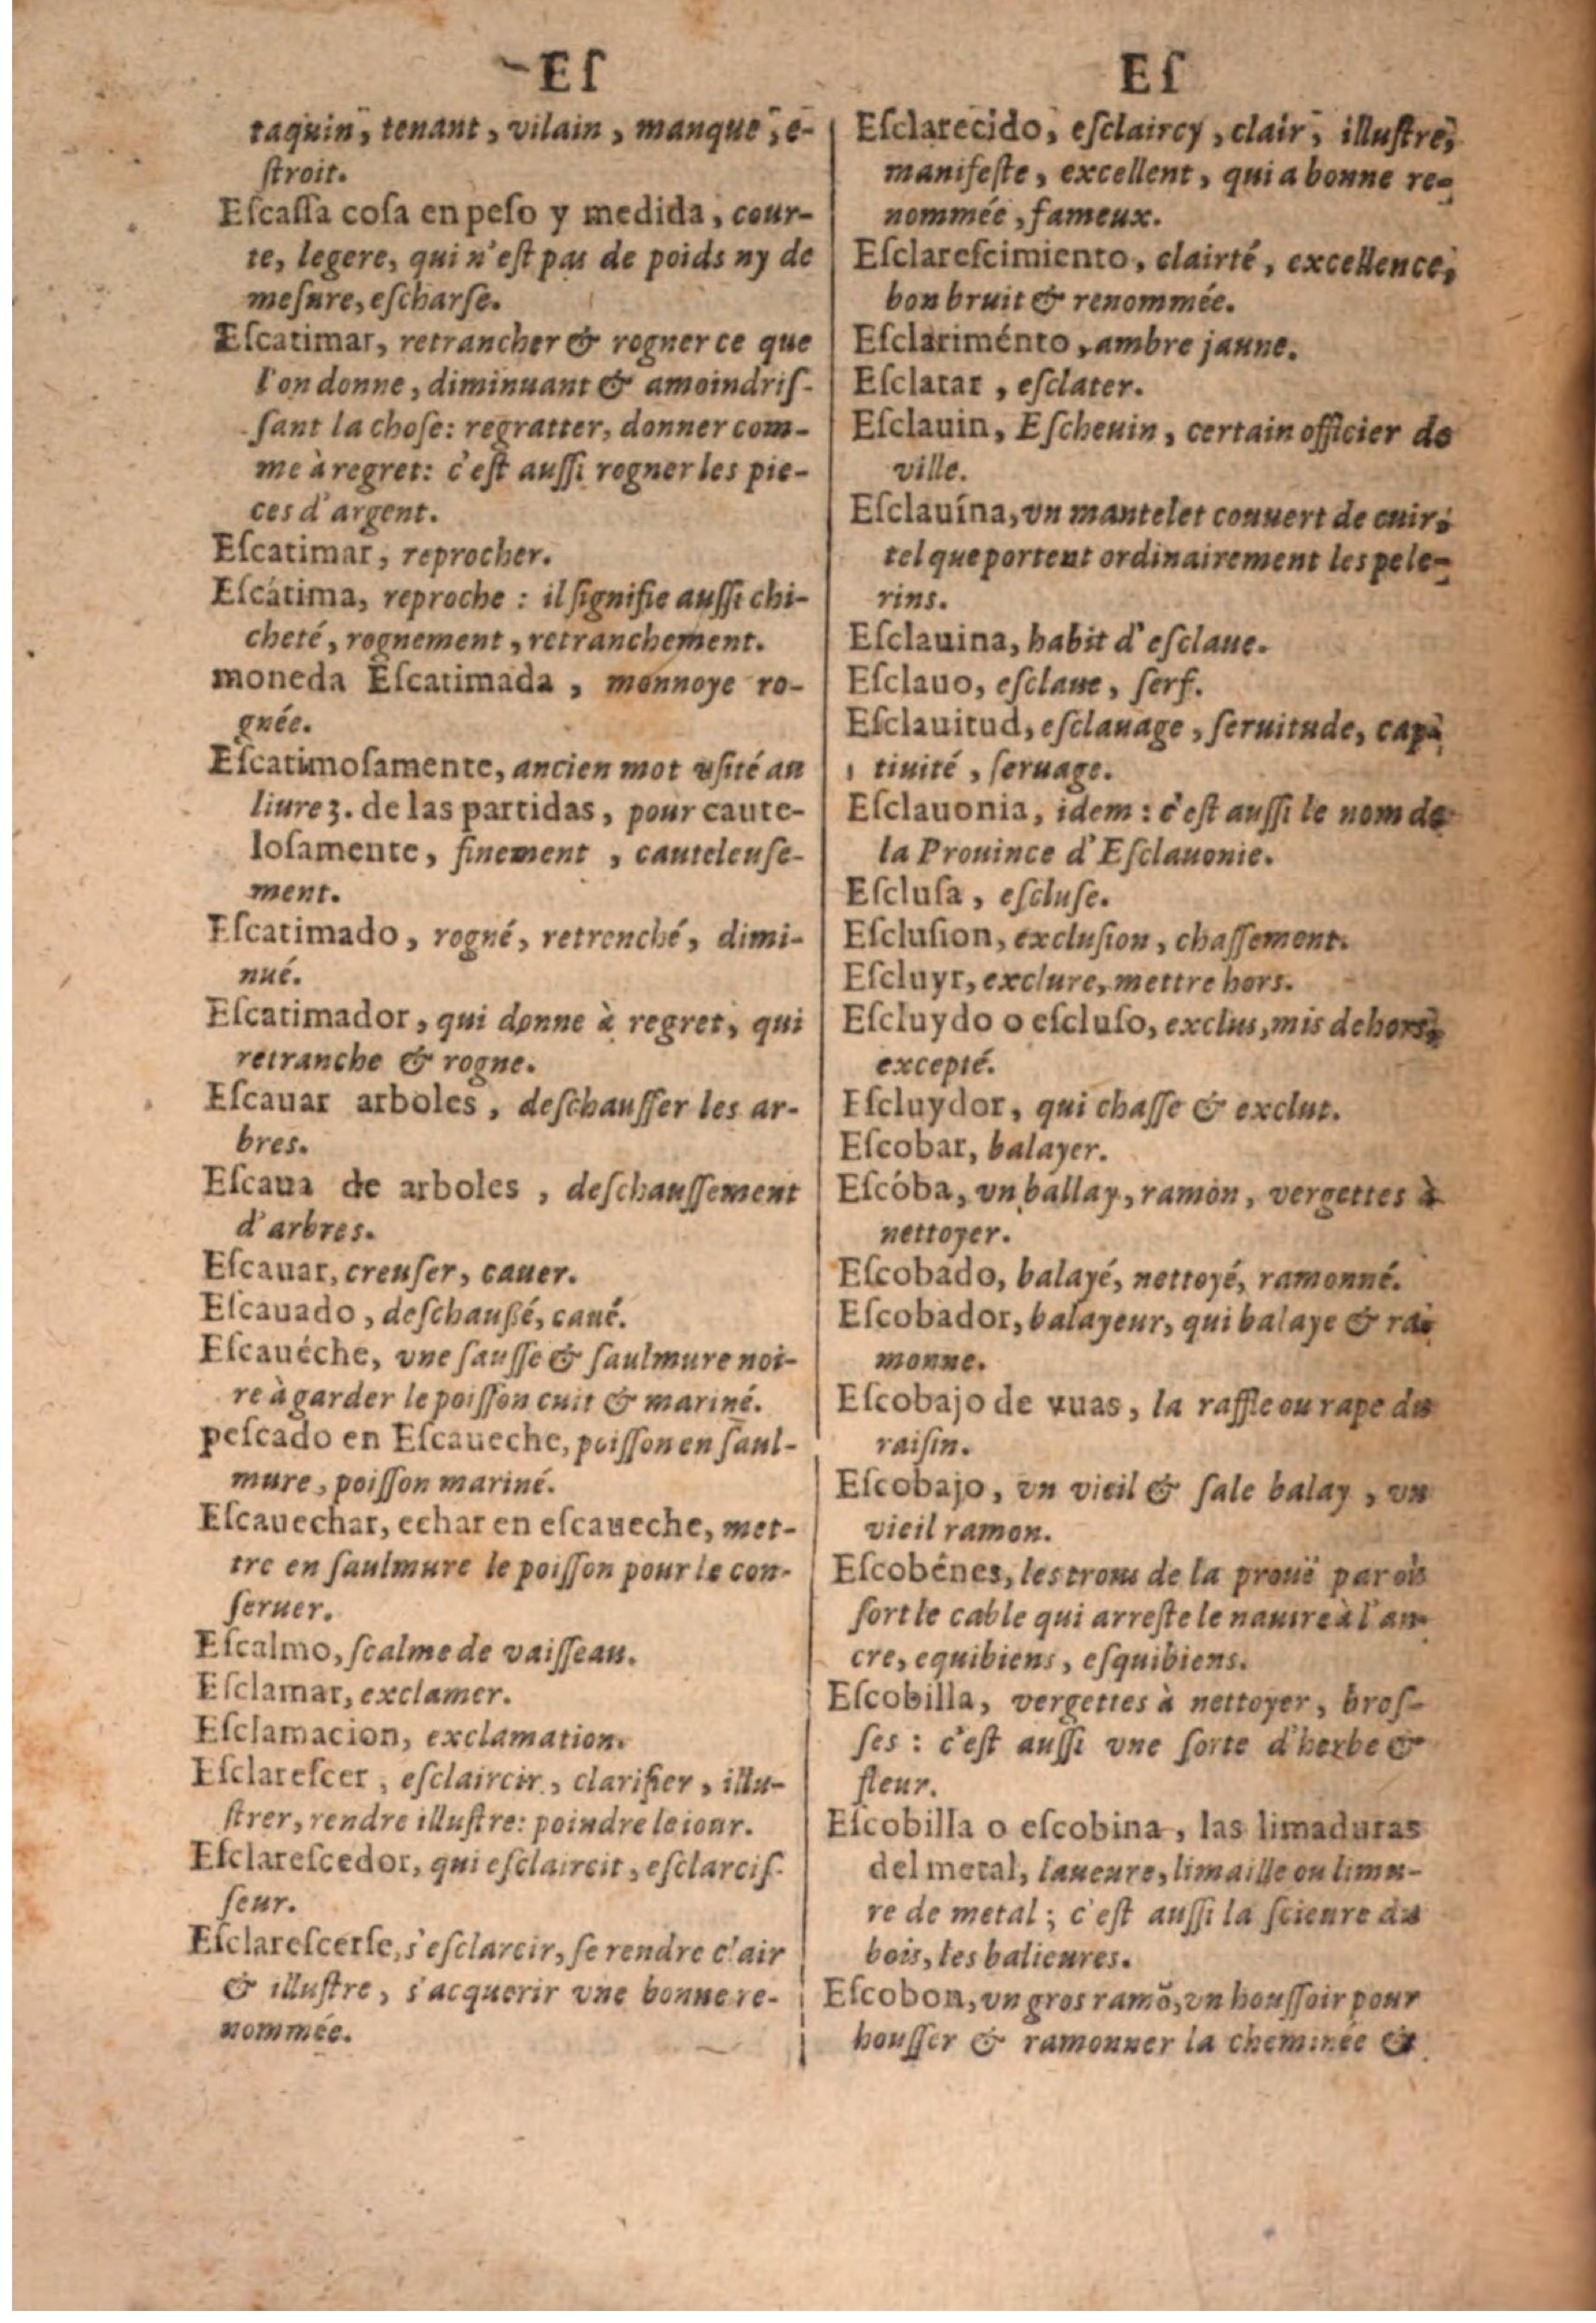 Eſ
taquin, tenant, vilain, manque, e-
ſtroit.
Eſcaſſa coſa en peſo y medida, cour-
te, legere, qui n'eſt pas de poids ny de
meſure, eſcharſe.
Eſcatimar, retrancher & rogner ce que
l'on donne, diminuant & amoindriſ-
ſant la choſe: regratter, donner com-
me à regret: c'eſt auſſi rogner les pie-
ces d'argent.
Eſcatimar, reprocher.
Eſcátima, reproche : il ſignifie auſſi chi-
cheté, rognement, retranchement.
moneda Eſcatimada, monnoye ro-
gnée.
Eſcatimoſamente, ancien mot vſité au
liure 3. de las partidas, pour caute-
loſamente, finement, cauteleuſe-
ment.
Eſcatimado, rogné, retrenché, dimi-
nué.
Eſcatimador, qui donne à regret, qui
retranche & rogne.
Eſcauar arboles, deſchauſſer les ar-
bres.
Eſcaua de arboles, deſchauſſement
d'arbres.
Eſcauar, creuſer, cauer.
Eſcauado, deſchauſſé, caué.
Eſcauéche, vne ſauſſe & ſaulmure noi-
re à garder le poiſſon cuit & mariné.
peſcado en Eſcaueche, poiſſon en ſaul-
mure, poiſſon mariné.
Eſcauechar, echar en eſcaueche, met-
tre en ſaulmure le poiſſon pour le con-
ſeruer.
Eſcalmo, ſcalme de vaiſſeau.
Eſclamar, exclamer.
Eſclamacion, exclamation.
Eſclareſcer, eſclaircir, clarifier, illu-
ſtrer, rendre illuſtre: poindre le iour.
Eſclareſcedor, qui eſclaircit, eſclarciſ-
ſeur.
Eſclareſcerſe, s'eſclarcir, ſe rendre clair
& illuſtre, s'acquerir vne bonne re-
nommée.
Eſ
Eſclarecido, eſclaircy, clair, illuſtre,
manifeſte, excellent, qui a bonne re-
nommée, fameux.
Eſclareſcimiento, clairté, excellence,
bon bruit & renommée.
Eſclariménto, ambre jaune.
Eſclatar, eſclater.
Eſclauin, Eſcheuin, certain officier de
ville.
Eſclauína, vn mantelet couuert de cuir,
tel que portent ordinairement les pele-
rins.
Eſclauina, habit d'eſclaue.
Eſclauo, eſclaue, ſerf.
Eſclauitud, eſclauage, ſeruitude, cap-
tiuité, ſeruage.
Eſclauonia, idem : c'eſt auſſi le nom de
la Prouince d'Eſclauonie.
Eſcluſa, eſcluſe.
Eſcluſion, excluſion, chaſſement.
Eſcluyr, exclure, mettre hors.
Eſcluydo o eſcluſo, exclus, mis dehors,
excepté.
Eſcluydor, qui chaſſe & exclut.
Eſcobar, balayer.
Eſcóba, vn ballay, ramon, vergettes à
nettoyer.
Eſcobado, balayé, nettoyé, ramonné.
Eſcobador, balayeur, qui balaye & ra-
monne.
Eſcobajo de vuas, la raffle ou rape du
raiſin.
Eſcobajo, vn vieil & ſale balay, vn
vieil ramon.
Eſcobénes, les trous de la prouë par où
ſort le cable qui arreſte le nauire à l'an-
cre, equibiens, eſquibiens.
Eſcobilla, vergettes à nettoyer, broſ-
ſes : c'eſt auſſi vne ſorte d'herbe &
fleur.
Eſcobilla o eſcobina, las limaduras
del metal, laueure, limaille ou limu-
re de metal; c'eſt auſſi la ſcieure du
bois, les balieures.
Eſcobon, vn gros ramõ, vn houſſoir pour
houſſer & ramonner la cheminée &